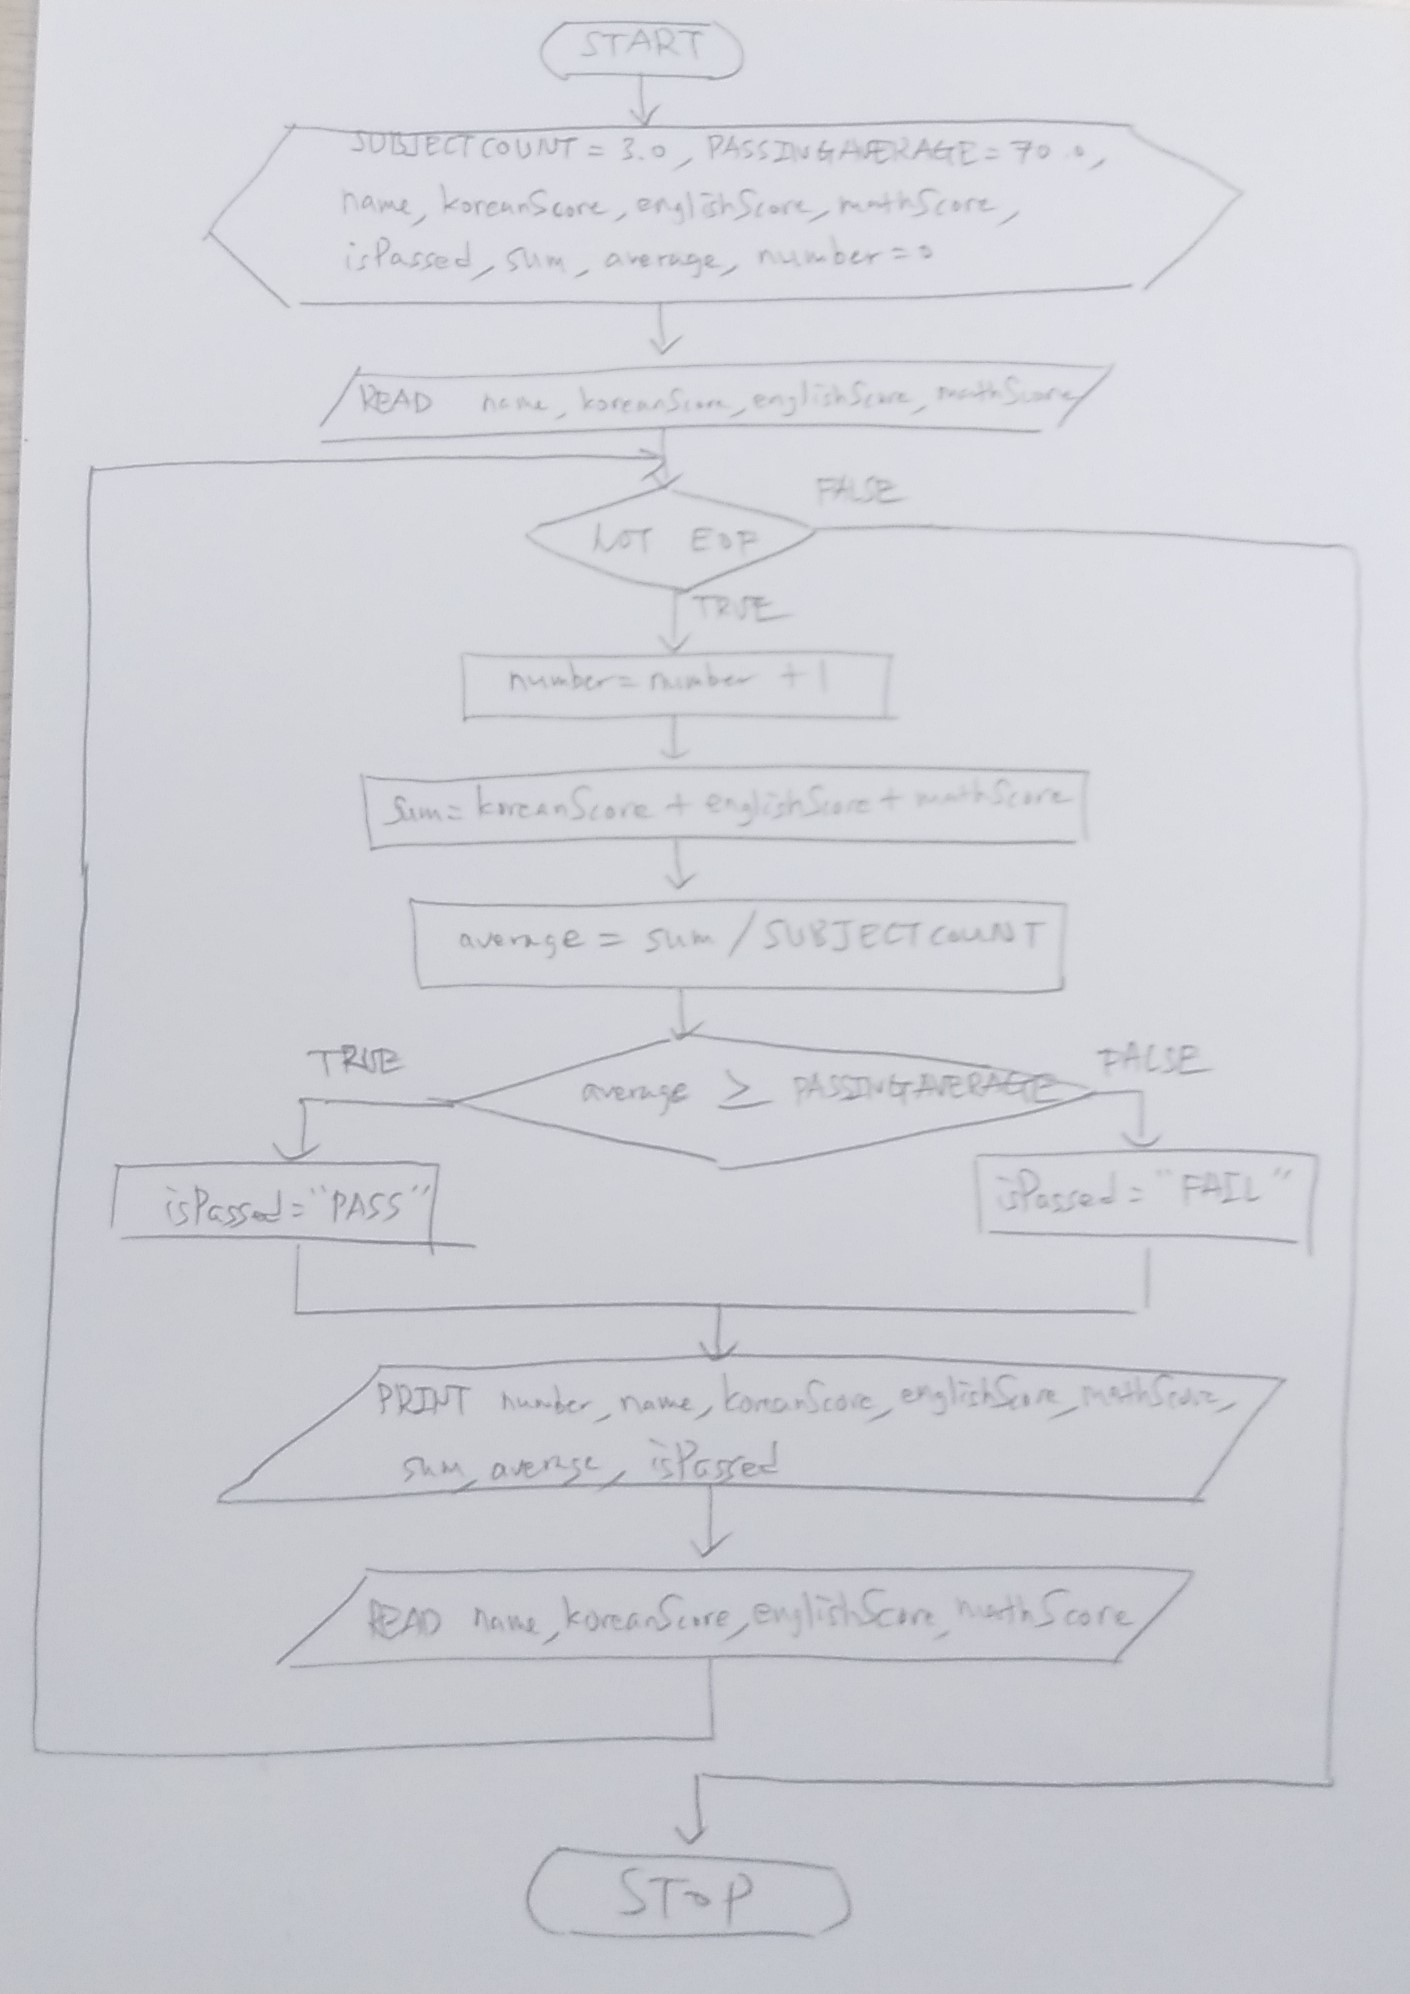 START
SUBJECTCOUNT = 3.0, PASSINGAVERAGE = 70.0,
name, koreanScore, englishScore, mathScore,
isPassed, sum, average, number = 0
READ name, koreanScore, englishScore, mathScore
NOT EOF
FALSE
TRUE
number = number + 1
sum = koreanScore + englishScore + mathScore
average = sum / SUBJECTCOUNT
TRUE
average ≥ PASSINGAVERAGE
FALSE
isPassed = "PASS"
isPassed = "FAIL"
PRINT number, name, koreanScore, englishScore, mathScore,
sum, average, isPassed
READ name, koreanScore, englishScore, mathScore
STOP